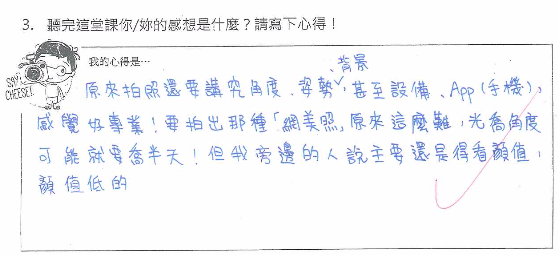 3. 聽完這堂課你/妳的感想是什麼？請寫下心得！
SAY CHEESE!
我的心得是…
原來拍照還要講究角度、姿勢、背景，甚至設備、App(手機)，
感覺好專業！要拍出那種「網美照」原來這麼難，光喬角度
可能就要喬半天！但我旁邊的人說主要還是得看顏值，
顏值低的